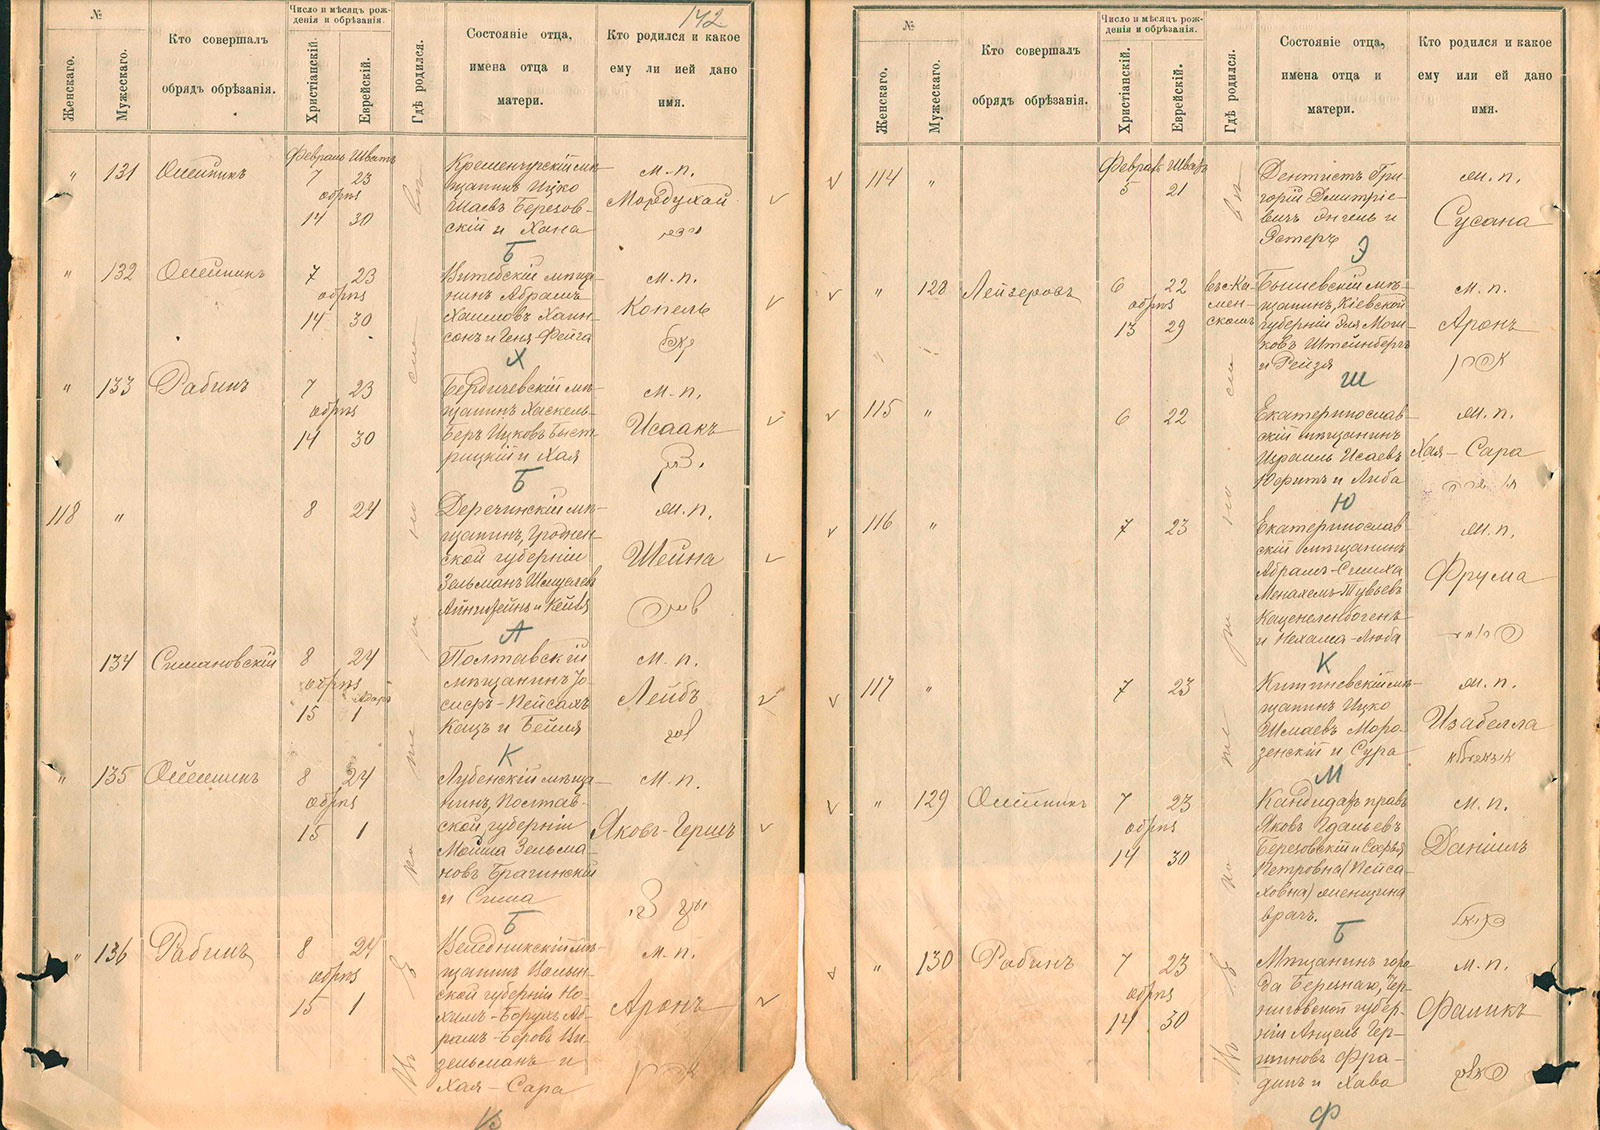 142
№
Женскаго.
Мужескаго.
Кто совершалъ
обрядъ обрѣзанія.
Число и мѣсяцъ рож-
денія и обрѣзанія.
Христіанскій.
Еврейскій.
Гдѣ родился.
Состояніе отца,
имена отца и
матери.
Кто родился и какое
ему ли ией дано
имя.
Февраль Шватъ
" 131
7 23
обрѣз
14 30
Кременчугскій мѣ-
щанинъ Ицко
Шаевъ Березов-
скій и Хана
м. п.
Мордухай
Б
" 132
7 23
обрѣз
14 30
Витебскій мѣща-
нинъ Абрамъ
Хаимовъ Хаин-
сонъ и Геня-Фейга
м. п.
Копель
Х
" 133 Рабинъ
7 23
обрѣз
14 30
Бердичевскій мѣ-
щанинъ Хаскель-
Беръ Ицковъ Быст-
рицкій и Хая
м. п.
Исаакъ
Б
118 "
8 24
Деречинскій мѣ-
щанинъ, Гроднен-
ской губерніи
Зельманъ
м. п.
Шейна
А
134 Симановскій
8 24
обрѣз
Адаръ
15 1
Полтавскій
мѣщанинъ Іо-
сифъ-Пейсахъ
Кацъ и Бейля
м. п.
Лейбъ
К
" 135
8 24
обрѣз
15 1
Лубенскій мѣща-
нинъ, Полтав-
ской губерніи
Мойша Зельма-
новъ Брагинскій
и Сима
м. п.
Яковъ-Гершъ
Б
" 136 Рабинъ
8 24
обрѣз
15 1
мѣ-
щанинъ Волын-
ской губерніи Но-
химъ-Борухъ Аб-
рамъ-Беровъ Ви-
дельманъ и
Хая-Сара
м. п.
Аронъ
В
№
Женскаго.
Мужескаго.
Кто совершалъ
обрядъ обрѣзанія.
Число и мѣсяцъ рож-
денія и обрѣзанія.
Христіанскій.
Еврейскій.
Гдѣ родился.
Состояніе отца,
имена отца и
матери.
Кто родился и какое
ему или ей дано
имя.
Феврал Шватъ
114 "
5 21
Дентистъ Гри-
горій Дмитріе-
вичъ Энгель и
Эстеръ
м. п.
Сусана
Э
" 128 Лейзеровъ
6 22
обрѣз
13 29
въ Ка-
мен-
скомъ
Бышевскій мѣ-
щанинъ, Кіевской
губерніи Эля Мош-
ковъ Штейнбергъ
и Рейзя
м. п.
Аронъ
Ш
115 "
6 22
Екатеринослав-
скій мѣщанинъ
Израиль Исаевъ
Юфитъ и Либа
м. п.
Хая-Сара
Ю
116 "
7 23
Екатеринослав-
скій мѣщанинъ
Абрамъ-Симха
Менахемъ-Тувьевъ
Каценеленбогенъ
и Нехама-Люба
м. п.
Фрума
К
117 "
7 23
Кишиневскій мѣ-
щанинъ Ицко
Шмаевъ Моро-
зенскій и Сура
м. п.
Изабелла
М
" 129
7 23
обрѣз
14 30
Кандидатъ правъ
Яковъ Гдальевъ
Березовскій и Софья
Петровна (Пейса-
ховна) женщина
врачъ.
м. п.
Даніилъ
Б
" 130 Рабинъ
7 23
обрѣз
14 30
Мѣщанинъ горо-
да Березнаго, Чер-
ниговской губер-
ніи Анцель Гер-
шиновъ Фра-
динъ и Хава
м. п.
Фаликъ
Ф